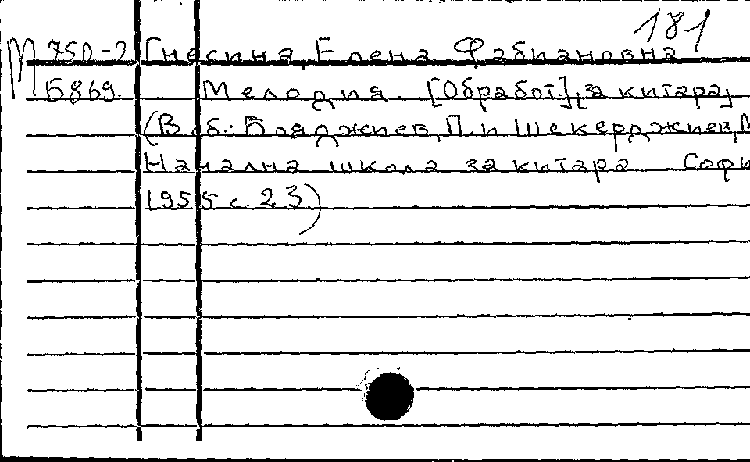 181
М 750-2 Гнесина, Елена Фабиановна
Б869. Мелодия. [Обработ], за китара,
(В сб.: Бояджиев, П. и Шекерджиев,
Начална школа за китара Софи
1955 с. 23)